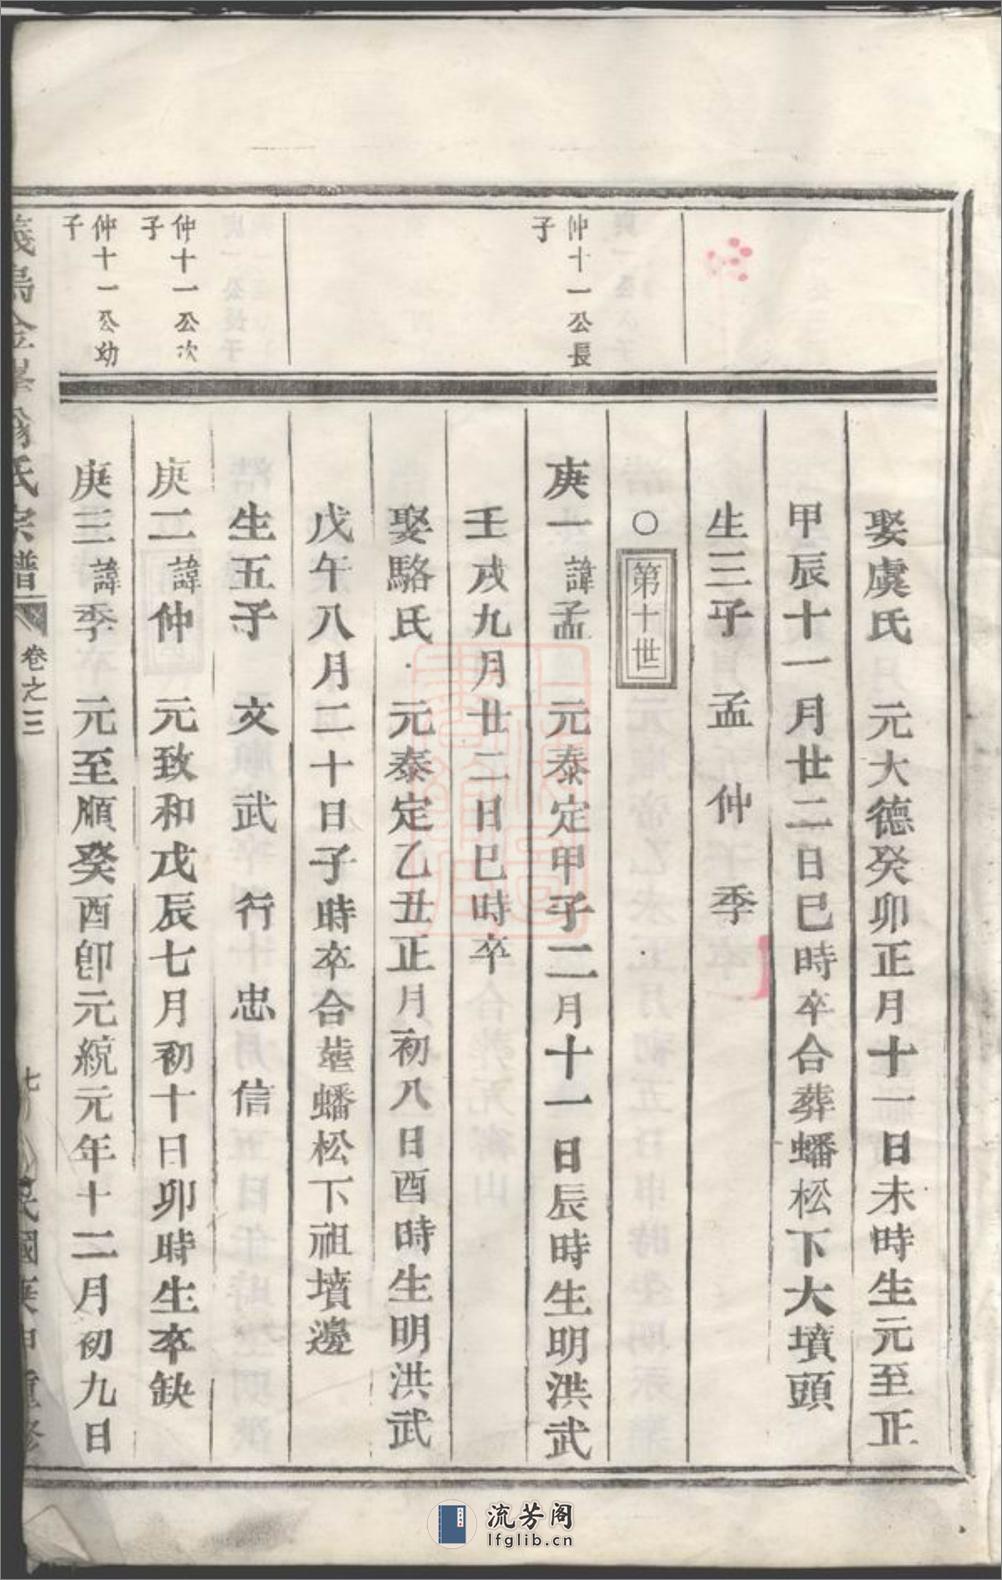 娶虞氏　元大德癸卯正月十一日未時生元至正
甲辰十一月廿二日巳時卒合葬蟠松下大墳頭
生三子　孟　仲　季
○第十世
仲十一公長
子
庚一諱孟　元泰定甲子二月十一日辰時生明洪武
壬戌九月廿二日巳時卒
娶駱氏　元泰定乙丑正月初八日酉時生明洪武
戊午八月二十日子時卒合塟蟠松下祖墳邊
生五子　文　武　行　忠　信
仲十一公次
子
庚二諱仲　元致和戊辰七月初十日卯時生卒缺
仲十一公幼
子
庚三諱季　元至順癸酉卽元統元年十二月初九日
義烏金　氏宗譜
卷之三
七
民國庚申重修
流芳阁
lfglib.cn